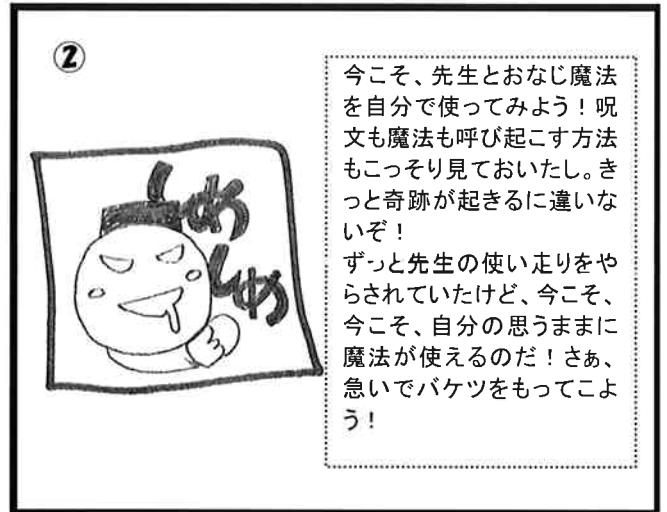 ②
今こそ、先生とおなじ魔法
を自分で使ってみよう！呪
文も魔法も呼び起こす方法
もこっそり見ておいたし。き
っと奇跡が起きるに違いな
いぞ！
ずっと先生の使い走りをや
らされていたけど、今こそ、
今こそ、自分の思うままに
魔法が使えるのだ！さぁ、
急いでバケツをもってこよ
う！
しめ
しめ